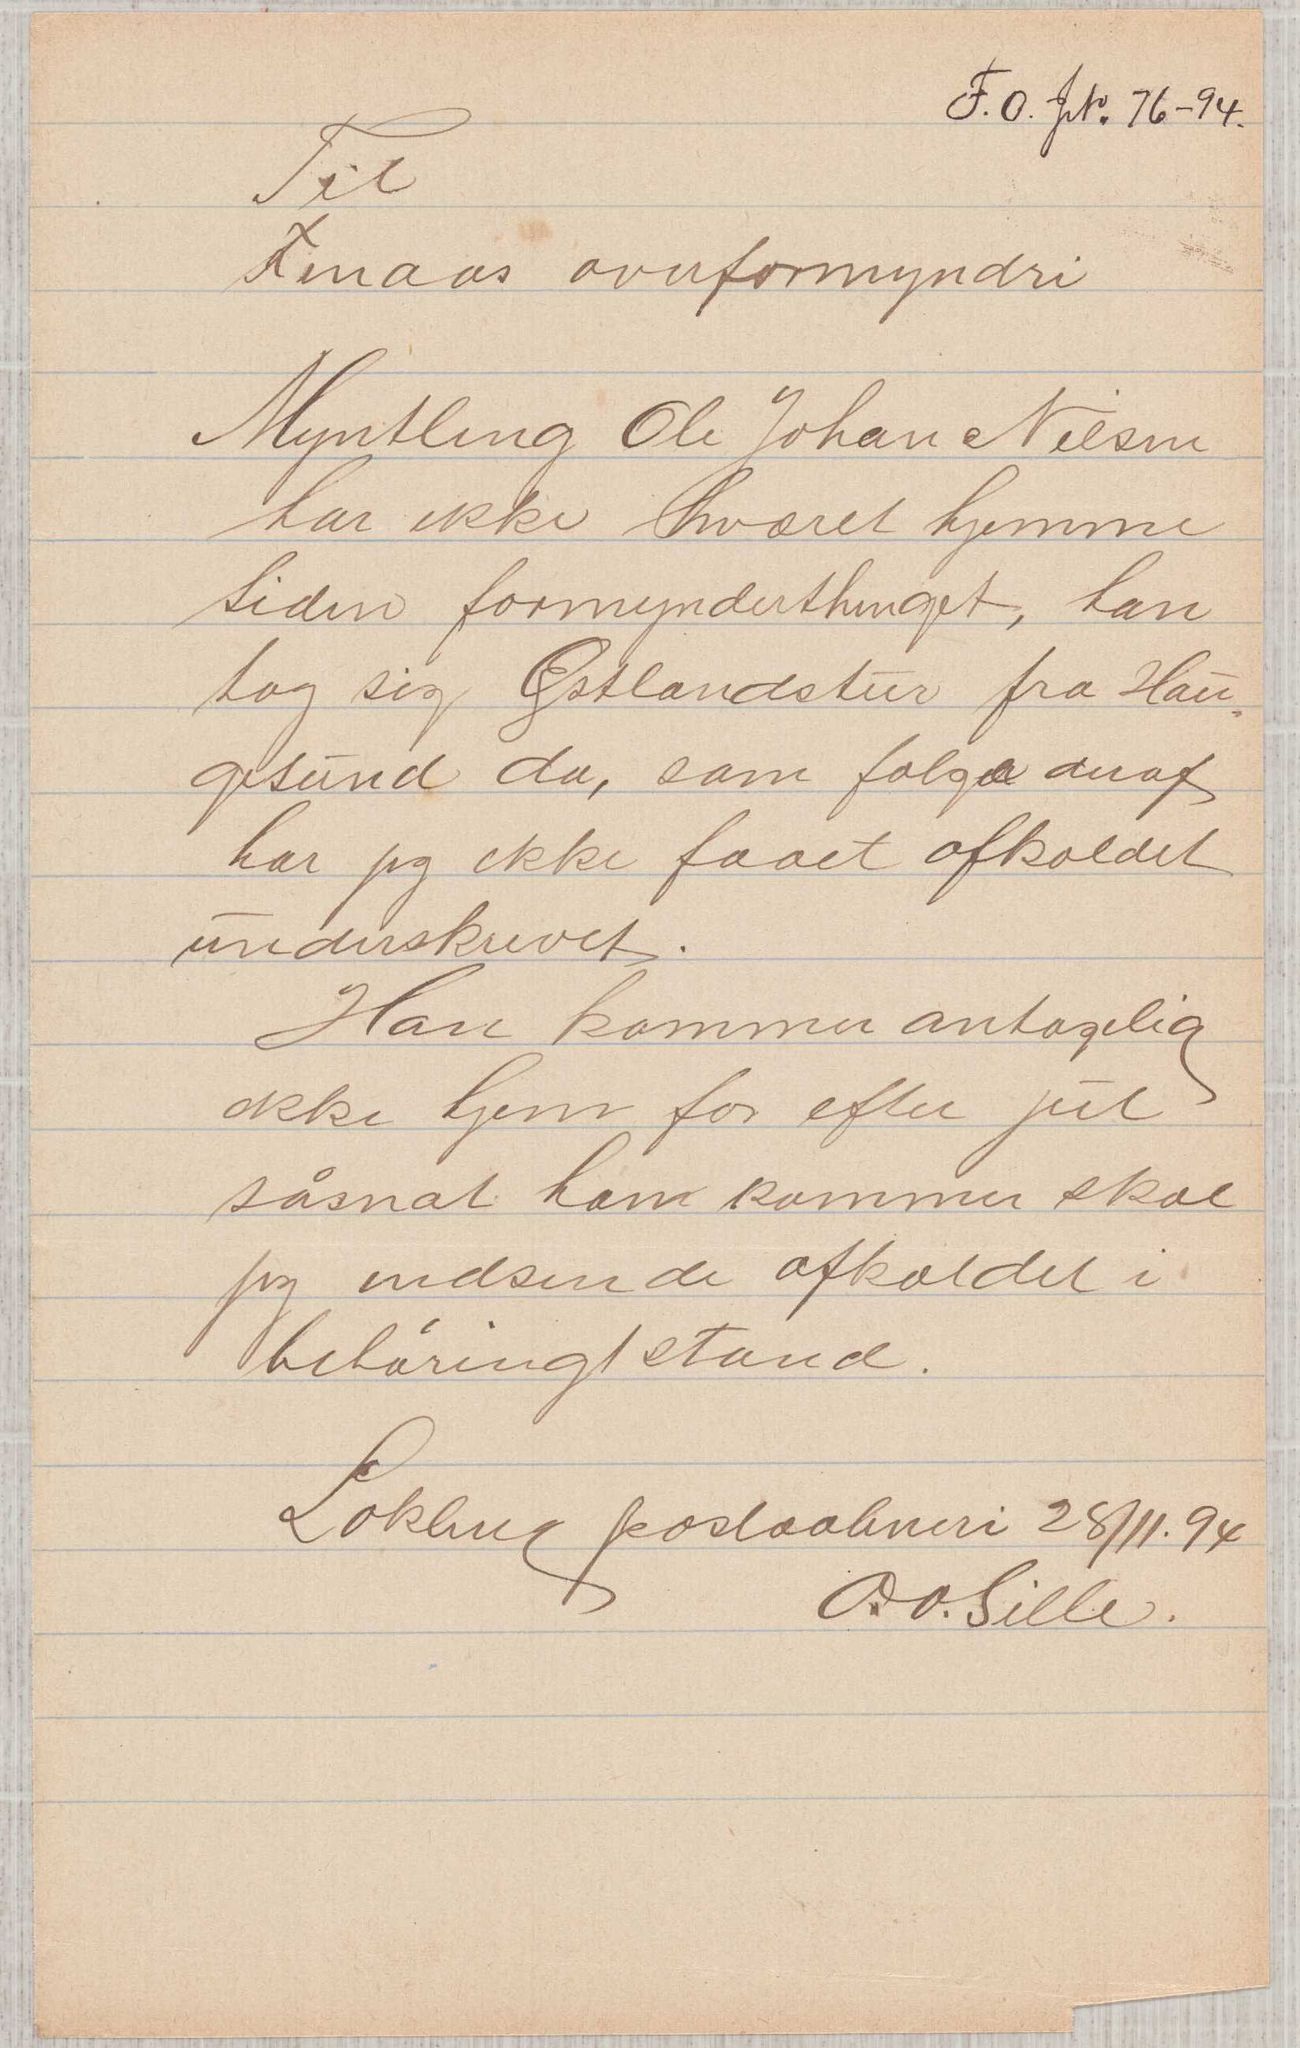 F. O. JNo. 76-94.
Til
Finaas overformynderi
Myntling Ole Johan Nilsen
har ikke hværet hjemme
siden formynderthinget, han
tog sig Østlandstur fra Hau„
gesund da, som følge deraf
har jeg ikke faaet afkaldet
underskrevet.
Han kommer antagelig
ikke hjem før efter jul
såsnat han kommer skal
jeg indsende afkaldet i
behöringstand.
Løkling postaabneri 28/11.94
O. O. Sille.